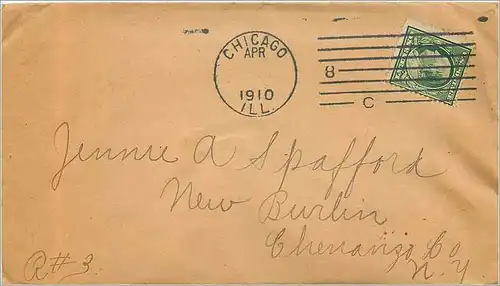 CHICAGO
APR
1910
ILL.
8
C
Jennie A Spafford
New Burlin
Chenango Co
N.Y
R#3